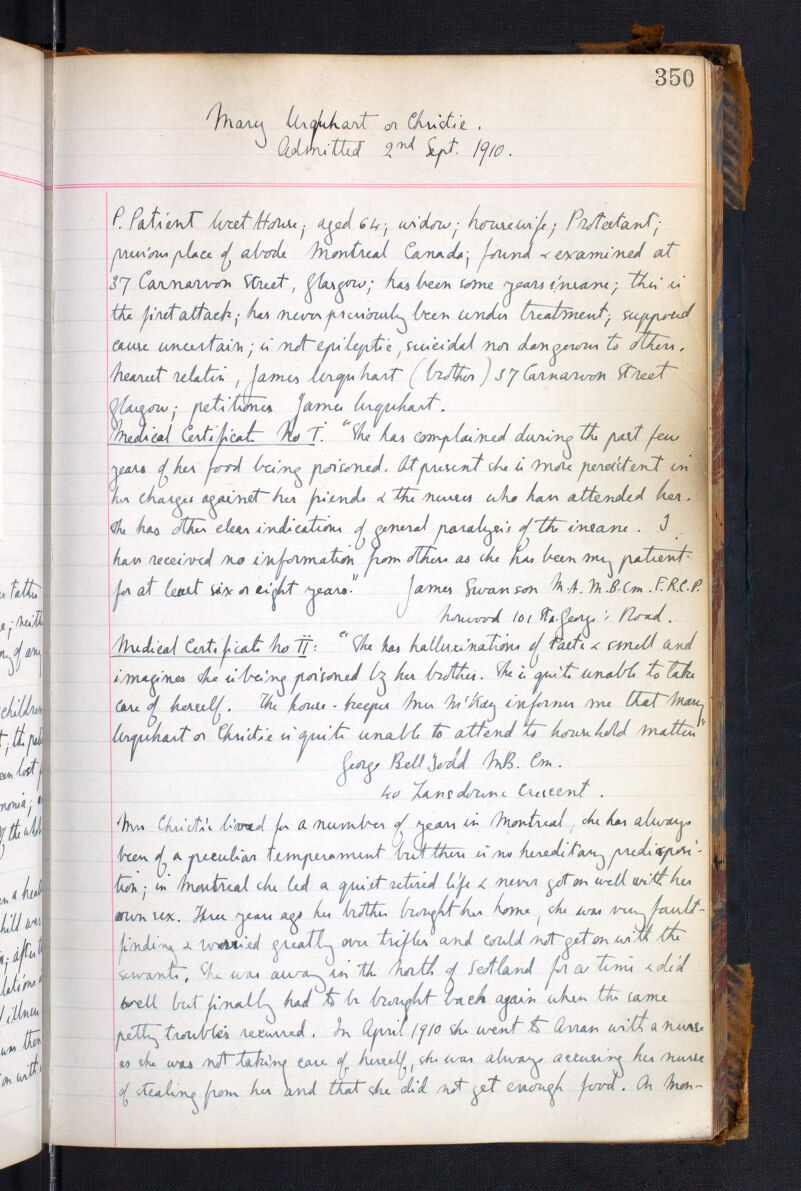 350
Mary Urquhart or Christie.
Admitted 2nd Sept. 1910.
P. Patient West House; aged 64; widow; housewife; Protestant;
previous place of abode Montreal Canada; found & examined at
37 Carnarvon Street, Glasgow; has been some years insane; this is
the first attack; has never previously been under treatment; supposed
cause uncertain; is not epileptic, suicidal nor dangerous to others.
Nearest relation, James Urquhart (brother) 37 Carnarvon Street
Glasgow; petitioner James Urquhart.
Medical Certificate No I. "She has complained during the past few
years of her food being poisoned. At present she is more persistent in
her charges against her friends & the nurses who have attended her.
She has other clear indications of general paralysis of the insane. I
have received no information from others as she has been my patient
for at least six or eight years." James Swanson M.A. M.B. Cm. F.R.C.P.
101 St. George's Road.
Medical Certificate No II: "She has hallucinations of taste & smell and
imagines she is being poisoned by her brother. She is quite unable to take
care of herself. The house-keeper Mrs McKay informs me that Mary
Urquhart or Christie is quite unable to attend to household matters"
George Bell Todd MB. Cm.
40 Lansdowne Crescent.
Mrs Christie lived for a number of years in Montreal, she has always
been of a peculiar temperament but there is no hereditary predisposi-
tion; in Montreal she led a quiet retired life & never got on well with her
own sex. Three years ago her brother brought her home, she was very fault-
finding & worried greatly over trifles and could not get on with the
servants. She was away in the north of Scotland for a time & did
well but finally had to be brought back again when the same
petty troubles recurred. In April 1910 she went to Arran with a nurse
as she was not taking care of herself, she was always accusing her nurse
of stealing from her and that she did not get enough food. On Mon-